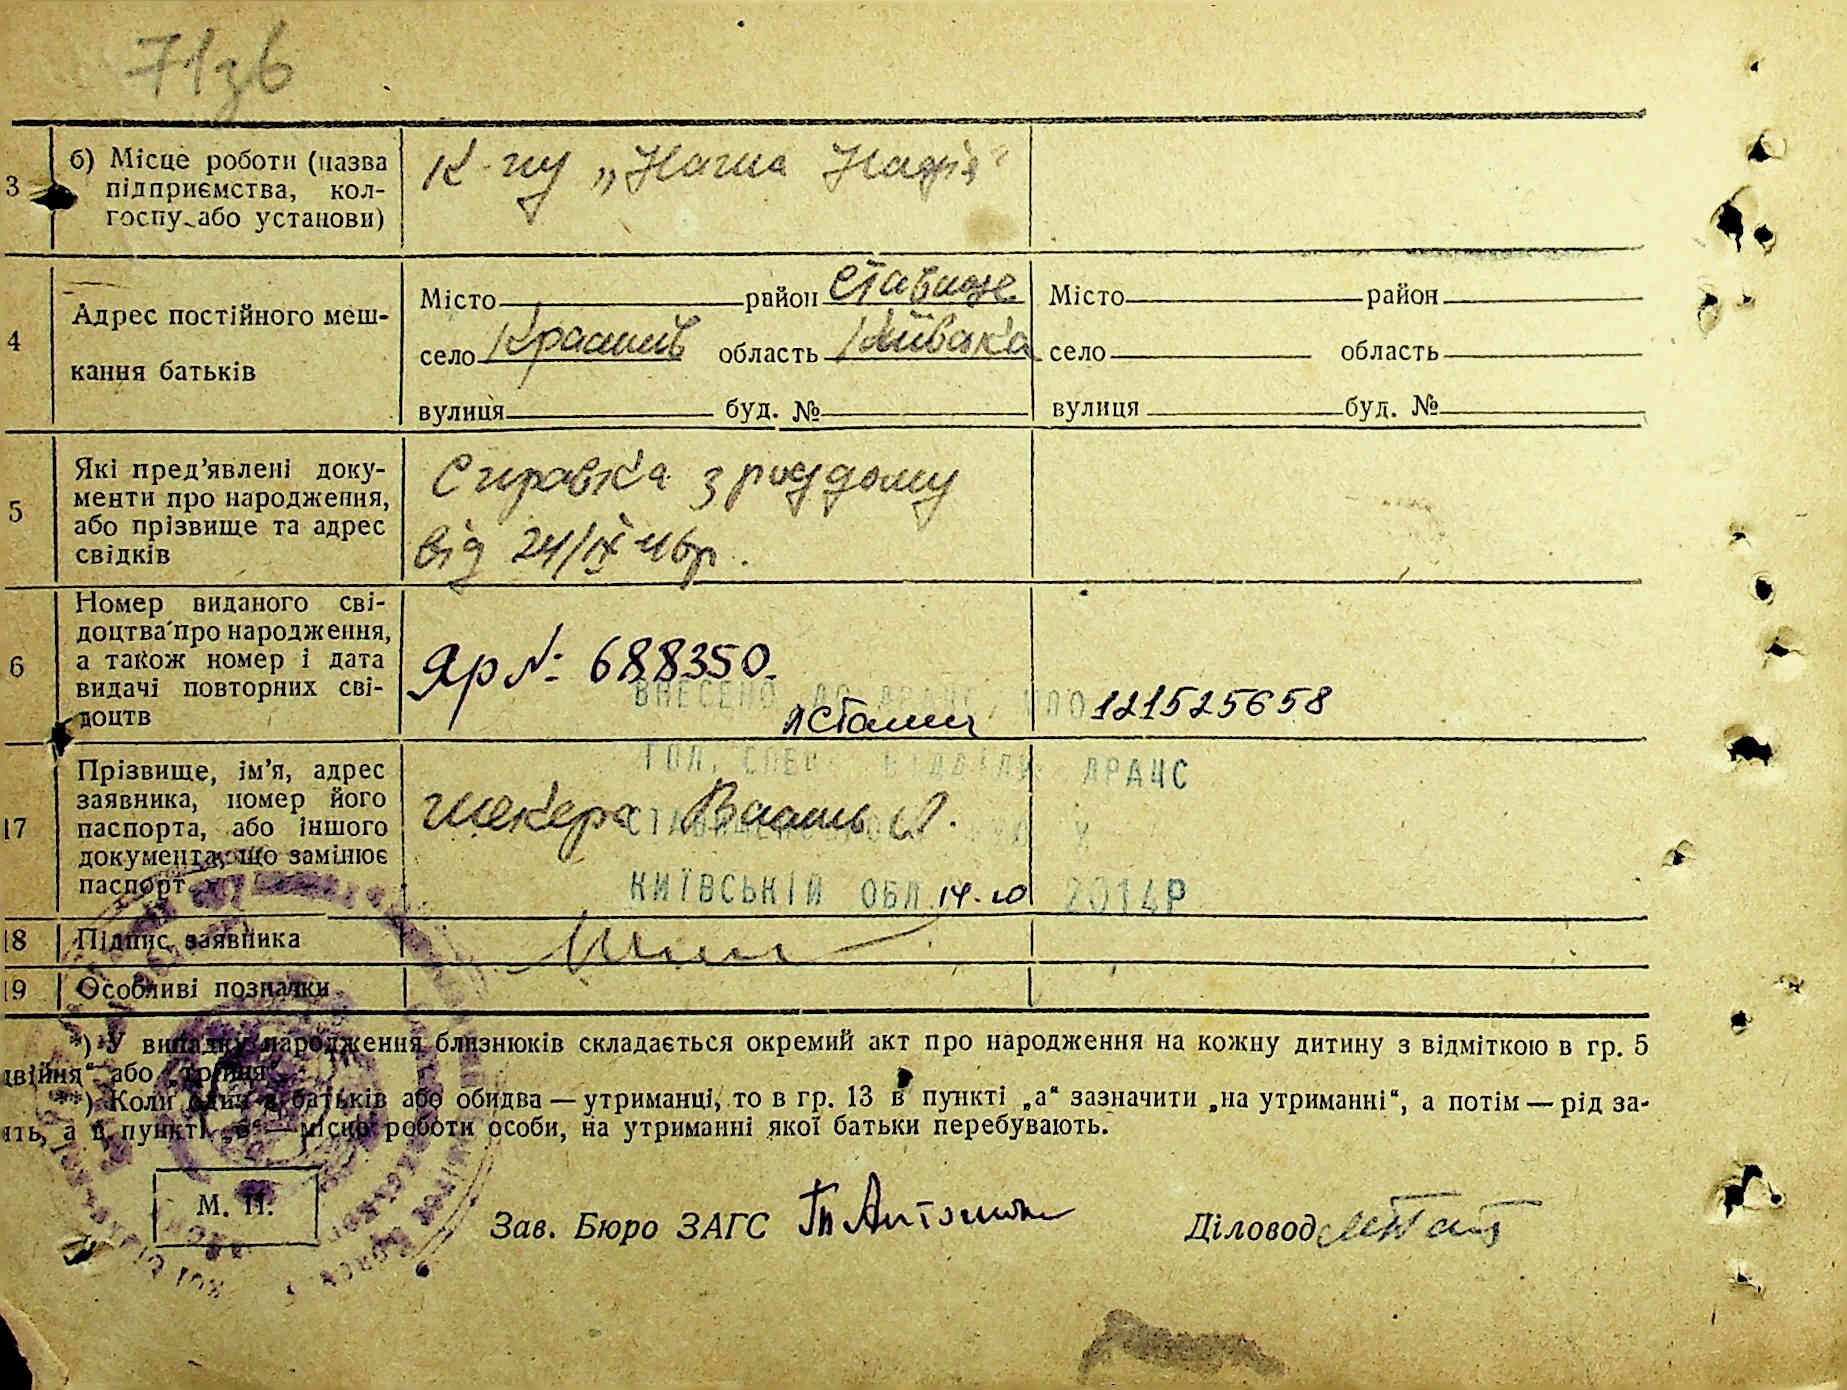 71зв
3 б) Місце роботи (назва підприємства, колгоспу або установи)
К-гу „Наша Надія"
4 Адрес постійного мешкання батьків
Місто район Ставище Місто район
село область Київська село область
вулиця буд. № вулиця буд. №
5 Які пред'явлені документи про народження, або прізвище та адрес свідків
Справка з роддому
від 24/IX-46р.
6 Номер виданого свідоцтва про народження, а також номер і дата видачі повторних свідоцтв
Яр № 688350.
ВНЕСЕНО ДО ДРАЦС 121525658
17 Прізвище, ім'я, адрес заявника, номер його паспорта, або іншого документа, що замінює паспорт
ГОЛ. СПЕЦ. ВІДДІЛУ ДРАЦС
Шекера
КИЇВСЬКІЙ ОБЛ. 14.10 2014Р
18 Підпис заявника
19 Особливі позначки
*) У випадку народження близнюків складається окремий акт про народження на кожну дитину з відміткою в гр. 5
двійня" або „тройня".
**) Коли один з батьків або обидва — утриманці, то в гр. 13 в пункті „а" зазначити „на утриманні", а потім — рід за-
ять, а в пункті „б" — місце роботи особи, на утриманні якої батьки перебувають.
М. П.
Зав. Бюро ЗАГС Діловод